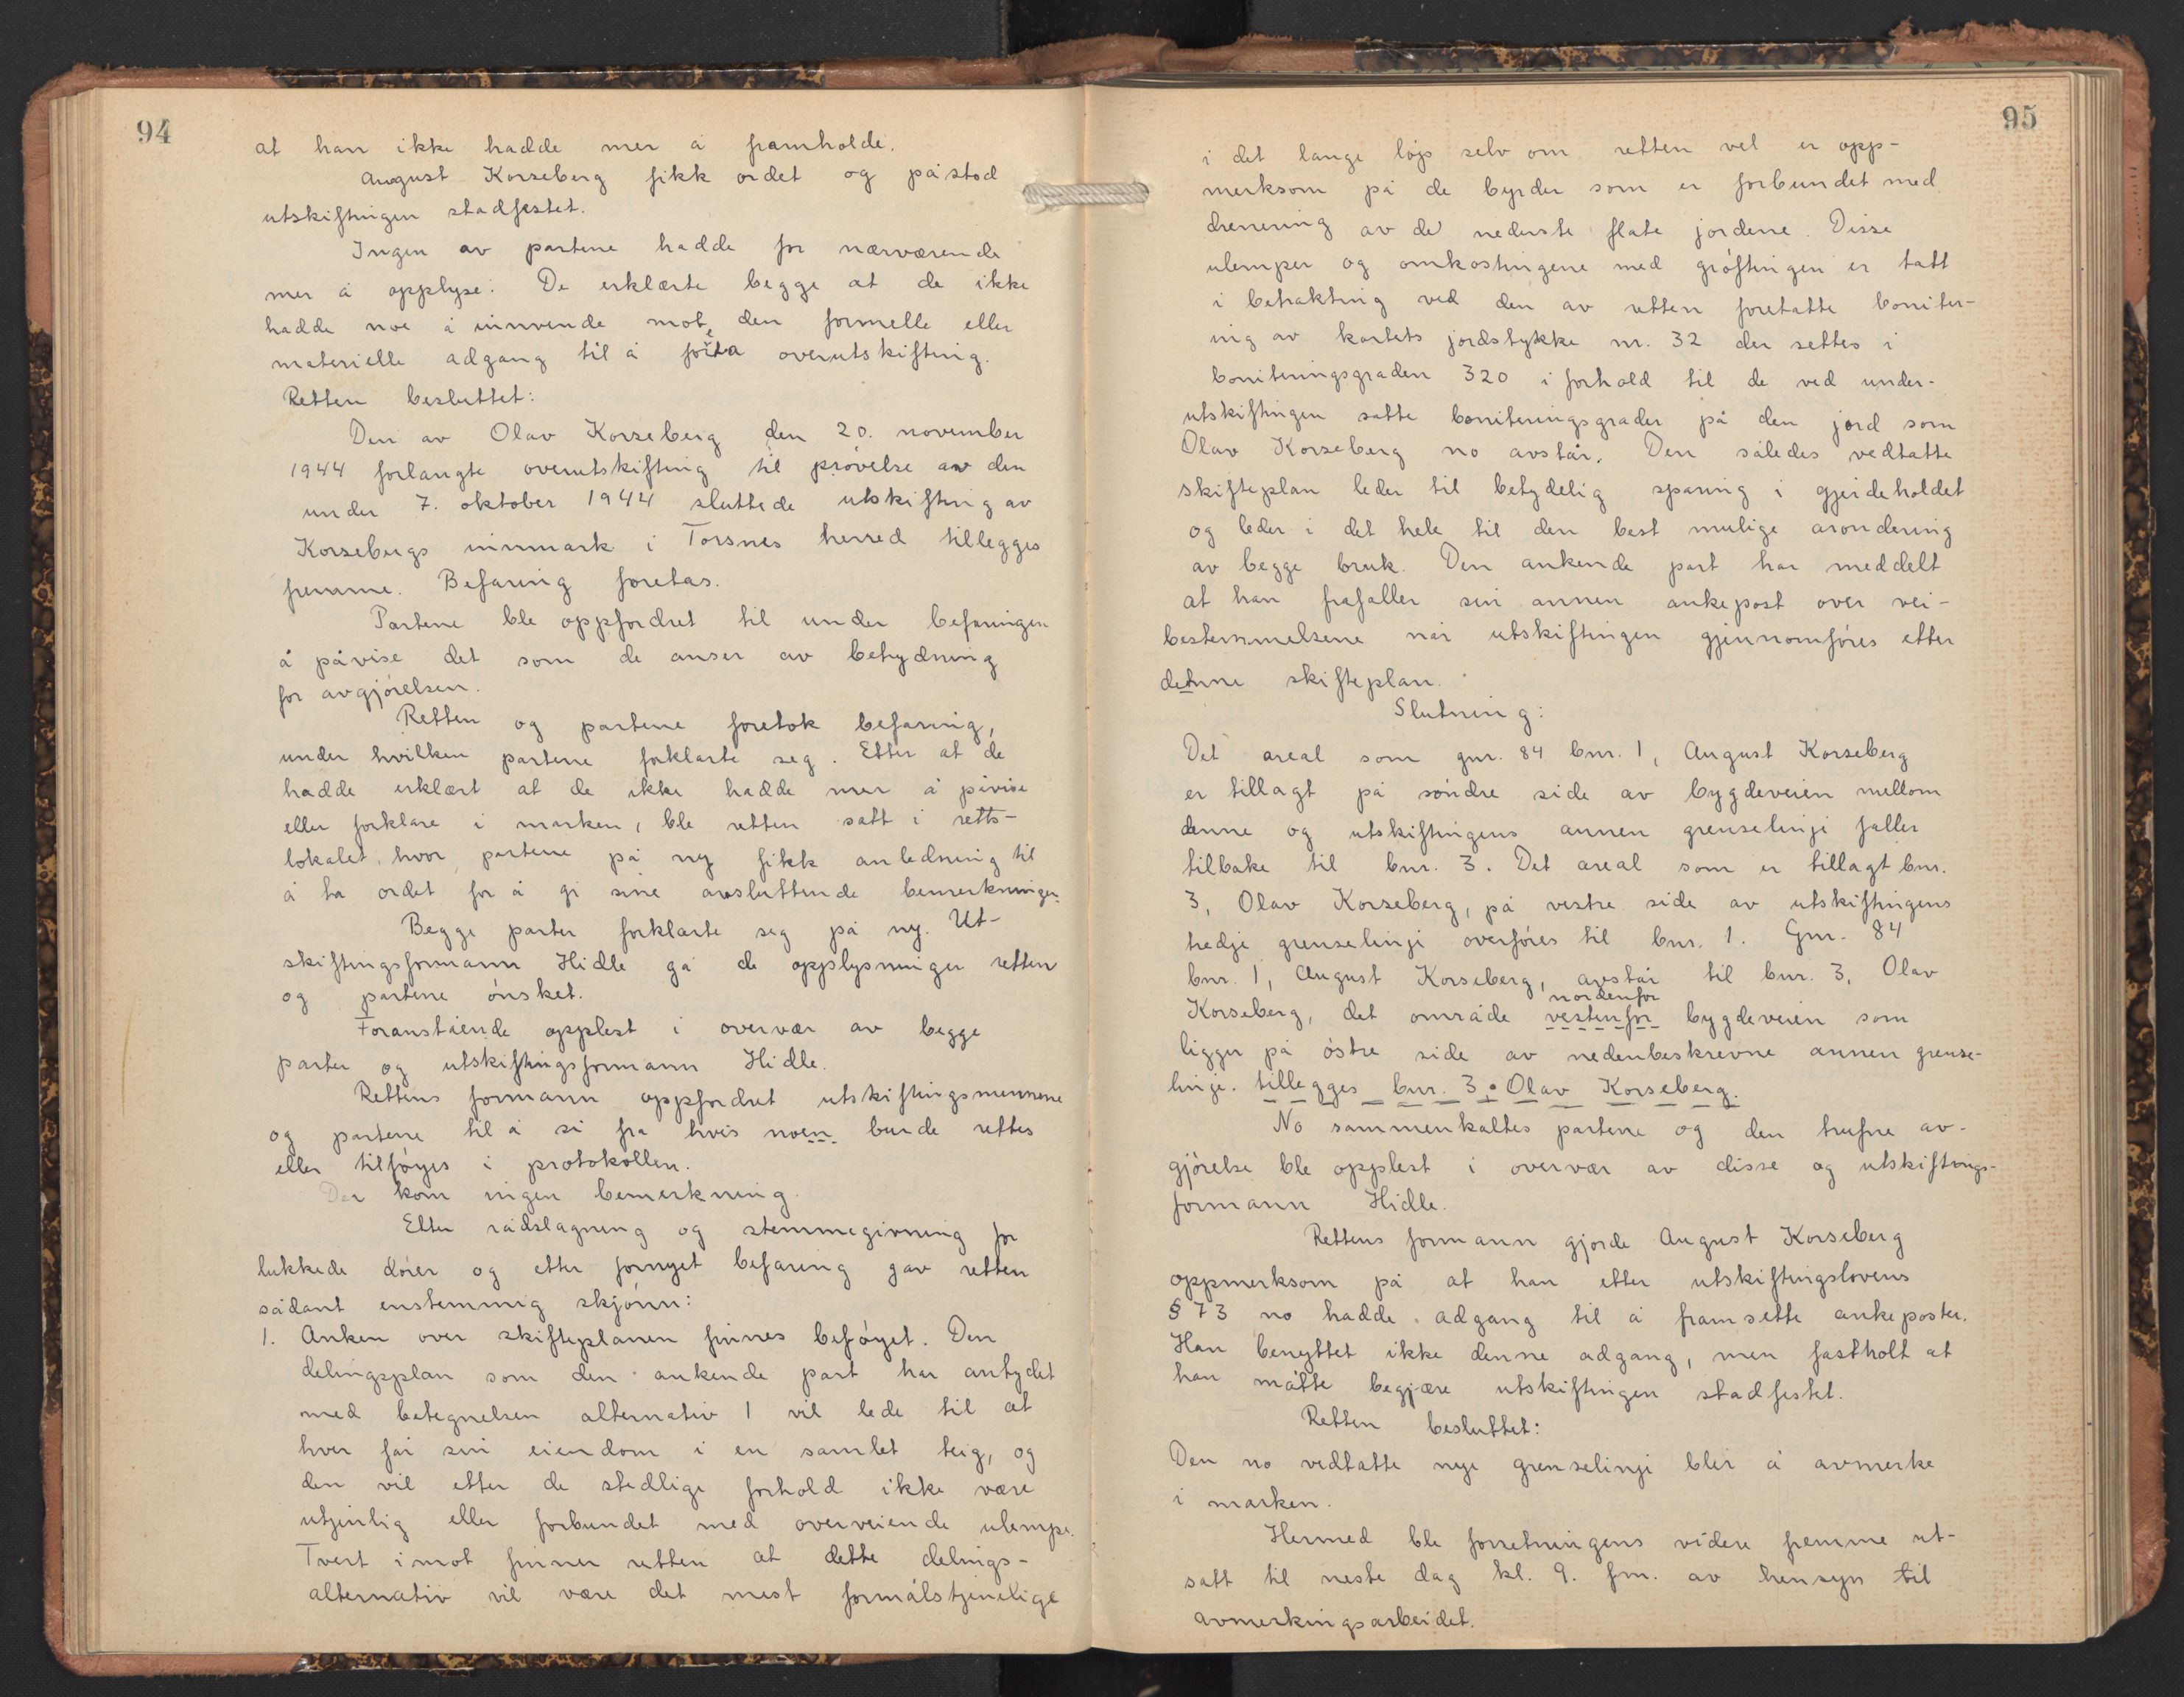 94
at han ikke hadde mer å framholde.
August Korseberg fikk ordet og påstod
utskiftingen stadfestet.
Ingen av partene hadde for nærværende
mer å opplyse. De erklærte begge at de ikke
hadde noe å innvende mot den formelle eller
materielle adgang til å foreta overutskifting.
Retten besluttet:
Den av Olav Korseberg den 20. november
1944 forlangte overutskifting til prøvelse av den
under 7. oktober 1944 sluttede utskifting av
Korsebergs innmark i Torsnes herred tillegges
fremme. Befaring foretas.
Partene ble oppfordret til under befaringen
å påvise det som de anser av betydning
for avgjørelsen.
Retten og partene foretok befaring,
under hvilken partene forklarte seg. Etter at de
hadde erklært at de ikke hadde mer å påvise
eller forklare i marken, ble retten satt i retts-
lokalet, hvor partene på ny fikk anledning til
å ta ordet for å gi sine avsluttende bemerkninger.
Begge parter forklarte seg på ny. Ut-
skiftingsformann Hidle ga de opplysninger retten
og partene ønsket.
Foranstående opplest i overvær av begge
parter og utskiftingsformann Hidle.
Rettens formann oppfordret utskiftingsmennene
og partene til å si fra hvis noen burde rettes
eller tilføyes i protokollen.
Der kom ingen bemerkning.
Etter rådslagning og stemmegivning for
lukkede dører og etter fornyet befaring gav retten
sådant enstemmig skjønn:
1. Anken over skifteplanen finnes beføyet. Den
delingsplan som den ankende part har antydet
med betegnelsen alternativ 1 vil lede til at
hver får sin eiendom i en samlet teig, og
den vil etter de stedlige forhold ikke være
utjenlig eller forbundet med overveiende ulempe.
Tvert imot finner retten at dette delings-
alternativ vil være det mest formålstjenelige
95
i det lange løp selv om retten vel er opp-
merksom på de byrder som er forbundet med
drenering av de nederste flate jordene. Disse
ulemper og omkostningene med grøftingen er tatt
i betraktning ved den av retten foretatte boniter-
ing av kartets jordstykke nr. 32 der settes i
boniteringsgraden 320 i forhold til de ved under-
utskiftingen satte boniteringsgrader på den jord som
Olav Korseberg no avstår. Den således vedtatte
skifteplan leder til betydelig sparing i gjerdeholdet
og leder i det hele til den best mulige arondering
av begge bruk. Den ankende part har meddelt
at han frafaller sin annen ankepost over vei-
bestemmelsene når utskiftingen gjennomføres etter
denne skifteplan.
Slutning:
Det areal som gnr. 84 bnr. 1, August Korseberg
er tillagt på søndre side av bygdeveien mellom
denne og utskiftingens annen grenselinje faller
tilbake til bnr. 3. Det areal som er tillagt bnr.
3, Olav Korseberg, på vestre side av utskiftingens
tredje grenselinje overføres til bnr. 1. Gnr. 84
bnr. 1, August Korseberg, avstår til bnr. 3, Olav
nordenfor
Korseberg, det område vestenfor bygdeveien som
ligger på østre side av nedenbeskrevne annen grense-
linje. tillegges bnr. 3. Olav Korseberg.
No sammenkaltes partene og den trufne av-
gjørelse ble opplest i overvær av disse og utskiftings-
formann Hidle.
Rettens formann gjorde August Korseberg
oppmerksom på at han etter utskiftingslovens
§ 73 no hadde adgang til å framsette ankeposter.
Han benyttet ikke denne adgang, men fastholt at
han måtte begjære utskiftingen stadfestet.
Retten besluttet:
Den no vedtatte nye grenselinje blir å avmerke
i marken.
Hermed ble forretningens videre fremme ut-
satt til neste dag kl. 9. fm. av hensyn til
avmerkingsarbeidet.